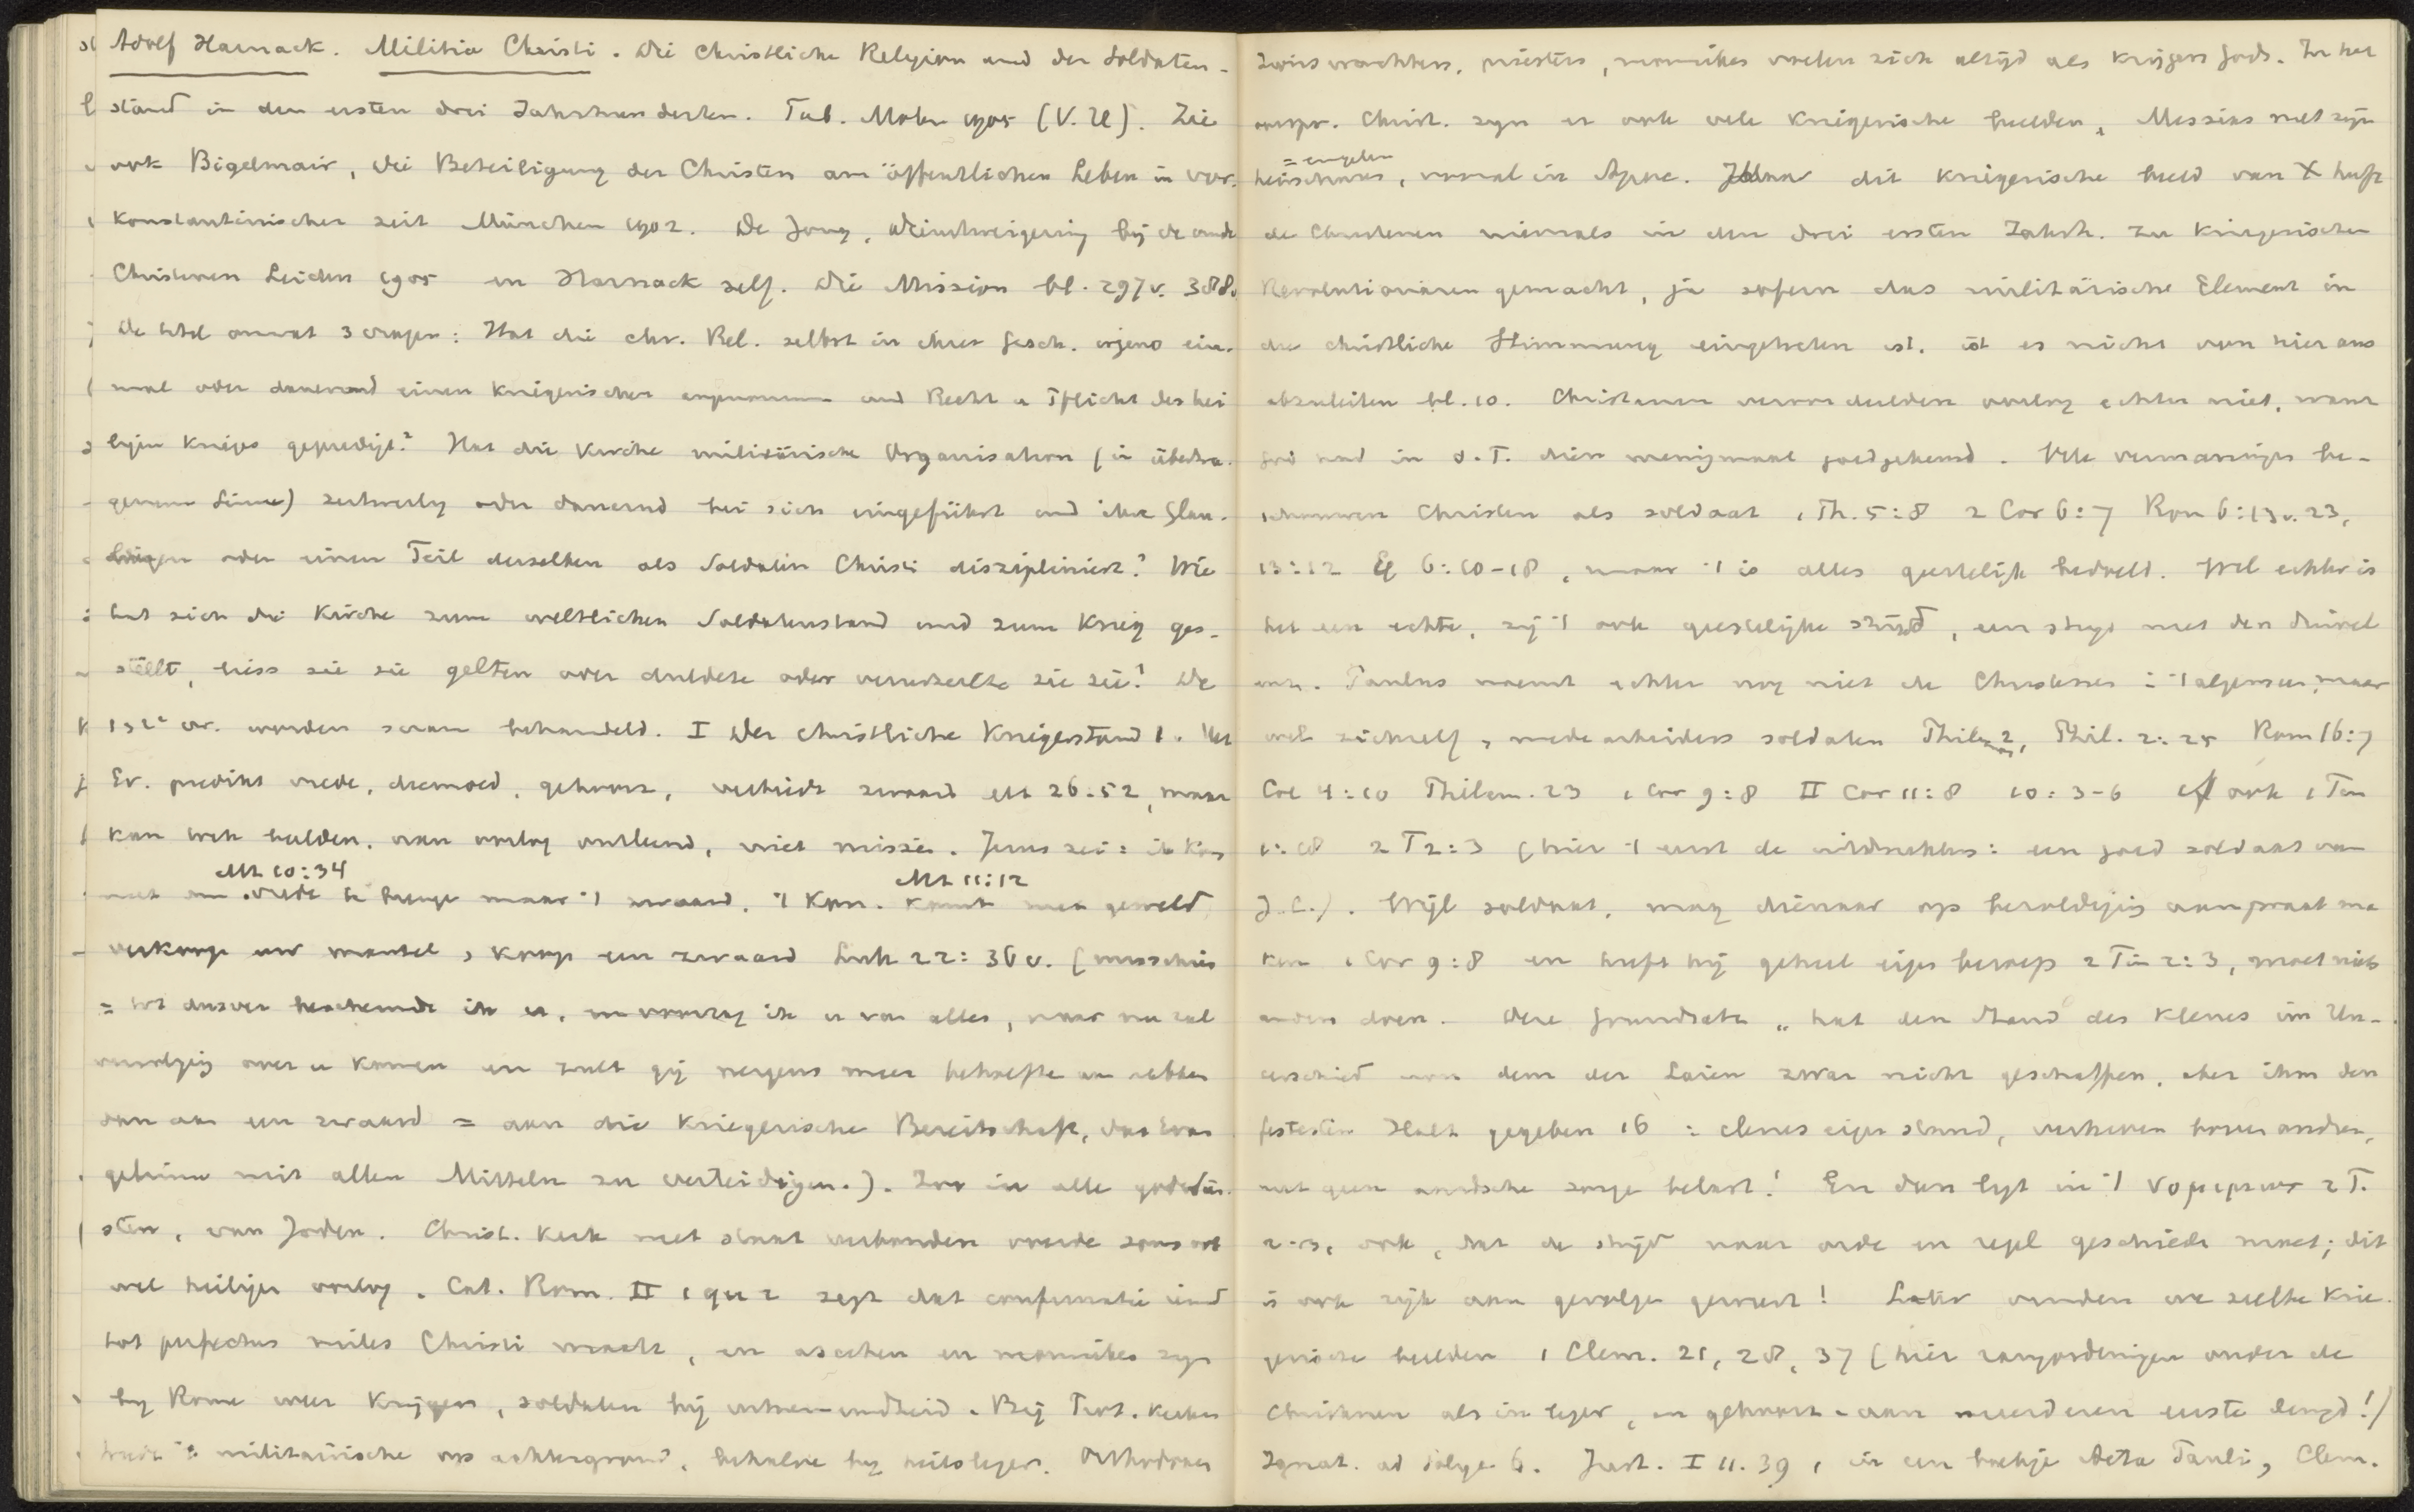 Adolf Harnack. Militia Christi. Die Christliche Religion und der Soldaten-
stand in den ersten drei Jahrhunderten. Tub. Mohr 1905 (V.U). Zie
ook Bigelmair, die Beteiligung der Christen am öffentlichen Leben in vor-
konstantinischer zeit München 1902. De Jong, Dienstweigering bij de oude
Christenen Leiden 1905 en Harnack zelf. Die Mission bl. 297v. 388v
De titel omvat 3 vragen: Hat die chr. Rel. selbst in ihrer Gesch. irgend ein-
mal oder dauernd einen kriegerischen angenommen und Recht u Pflicht des hei
ligen Krieges gepredigt? Hat die Kirche militärische Organisation (in übertra-
genem Sinne) zeitweilig oder dauernd bei sich eingeführt und ihre Gläu-
bigen oder einen Teil derselben als Soldaten Christi diszipliniert? Wie
hat sich die Kirche zum weltlichen Soldatenstand und zum Krieg ges-
tellt, liess sie sie gelten oder duldete oder verurteilte sie sie? De
1 2e vr. worden saam behandeld. I Der christliche Kriegerstand 1. Het
Ev. predikt vrede, deemoed, gehoorz, verbiedt zwaard Mt 26:52, maar
kan toch beelden, aan oorlog ontleend, niet missen. Jezus zei: ik kom
Mt 10:34 Mt 11:12
niet om vrede te brengen maar 't zwaard. 't Kon. komt met geweld
verkoop uw mantel, koop een zwaard Luk 22:36v. (misschien
= tot dusver beschermde ik u, en voorzag ik u van alles, maar nu zal
vervolging over u komen en zult gij nergens meer behoefte aan hebben
dan aan een zwaard = aan die kriegerische Bereitschaft, das Evan
gelium mit allen Mitteln zu verteidigen.). Zoo in alle godsdien-
sten, van Joden. Christ. Kerk met staat verbonden voerde soms ook
wel heilige oorlog. Cat. Rom. II 1 qu 2 zegt dat confirmatie iemd
tot perfectus miles Christi maakt, en asceten en monniken zijn
bij Rome weer krijgers, soldaten bij uitnemendheid. Bij Prot. kerken
treedt 't militairische op achtergrond, behalve bij heilsleger. Orthodoxen
priesters, monniken voelen zich altijd als krijgers Gods. In het
oorspr. Christ. zijn er ook vele kriegerische beelden, Messias met zijn
= engelen
heirscharen, vooral in Apoc. dit kriegerische beeld van X heeft
de Christenen niemals in den drei ersten Jahrh. zu kriegerischen
Revolutionären gemacht, ja sofern das militärische Element in
die christliche Stimmung eingetreten ist, ist es nicht von hier aus
abzuleiten bl. 10. Christenen veroordeelden oorlog echter niet, want
God had in O.T. dien menigmaal goedgekeurd. Vele vermaningen be-
schouwen Christen als soldaat 1 Th. 5:8 2 Cor 6:7 Rom 6:13v. 23,
13:12 Ef 6:10-18, maar 't is alles geestelijk bedoeld. Wel echter is
het een echte, zij 't ook geestelijke strijd, een strijd met den duivel
enz. Paulus noemt echter nog niet de Christenen in 't algemeen, maar
wel zichzelf, medearbeiders soldaten Philem 2, Phil. 2:25 Rom 16:7
Col 4:10 Philem. 23 1 Cor 9:8 II Cor 11:8 10:3-6 cf ook 1 Tim
1:18 2 T 2:3 (hier 't eerst de uitdrukking: een goed soldaat van
J.C.). Wijl soldaat, mag dienaar op bezoldiging aanspraak ma
ken 1 Cor 9:8 en heeft hij geheel eigen beroep 2 Tim 2:3, moet niets
anders doen. Deze Grundsatz "hat den Stand des Klerus im Un-
terschied von dem der Laien zwar nicht geschaffen, aber ihm den
festesten Halt gegeben 16 = clerus eigen stand, verheven boven andren,
met geen aardsche zorgen belast! En dan ligt in 't νομιμως 2 T.
2:5, ook, dat de strijd naar orde en regel geschieden moet; dit
is ook rijk aan gevolgen geweest! Later vinden we zelfde krie-
gerische beelden 1 Clem. 21, 28, 37 (hier rangordeningen onder de
Christenen als in leger, en gehoorz. aan meerderen eerste deugd!)
Ignat. ad Polyc. 6. Just. I 11. 39, in een boekje Acta Pauli, Clem.